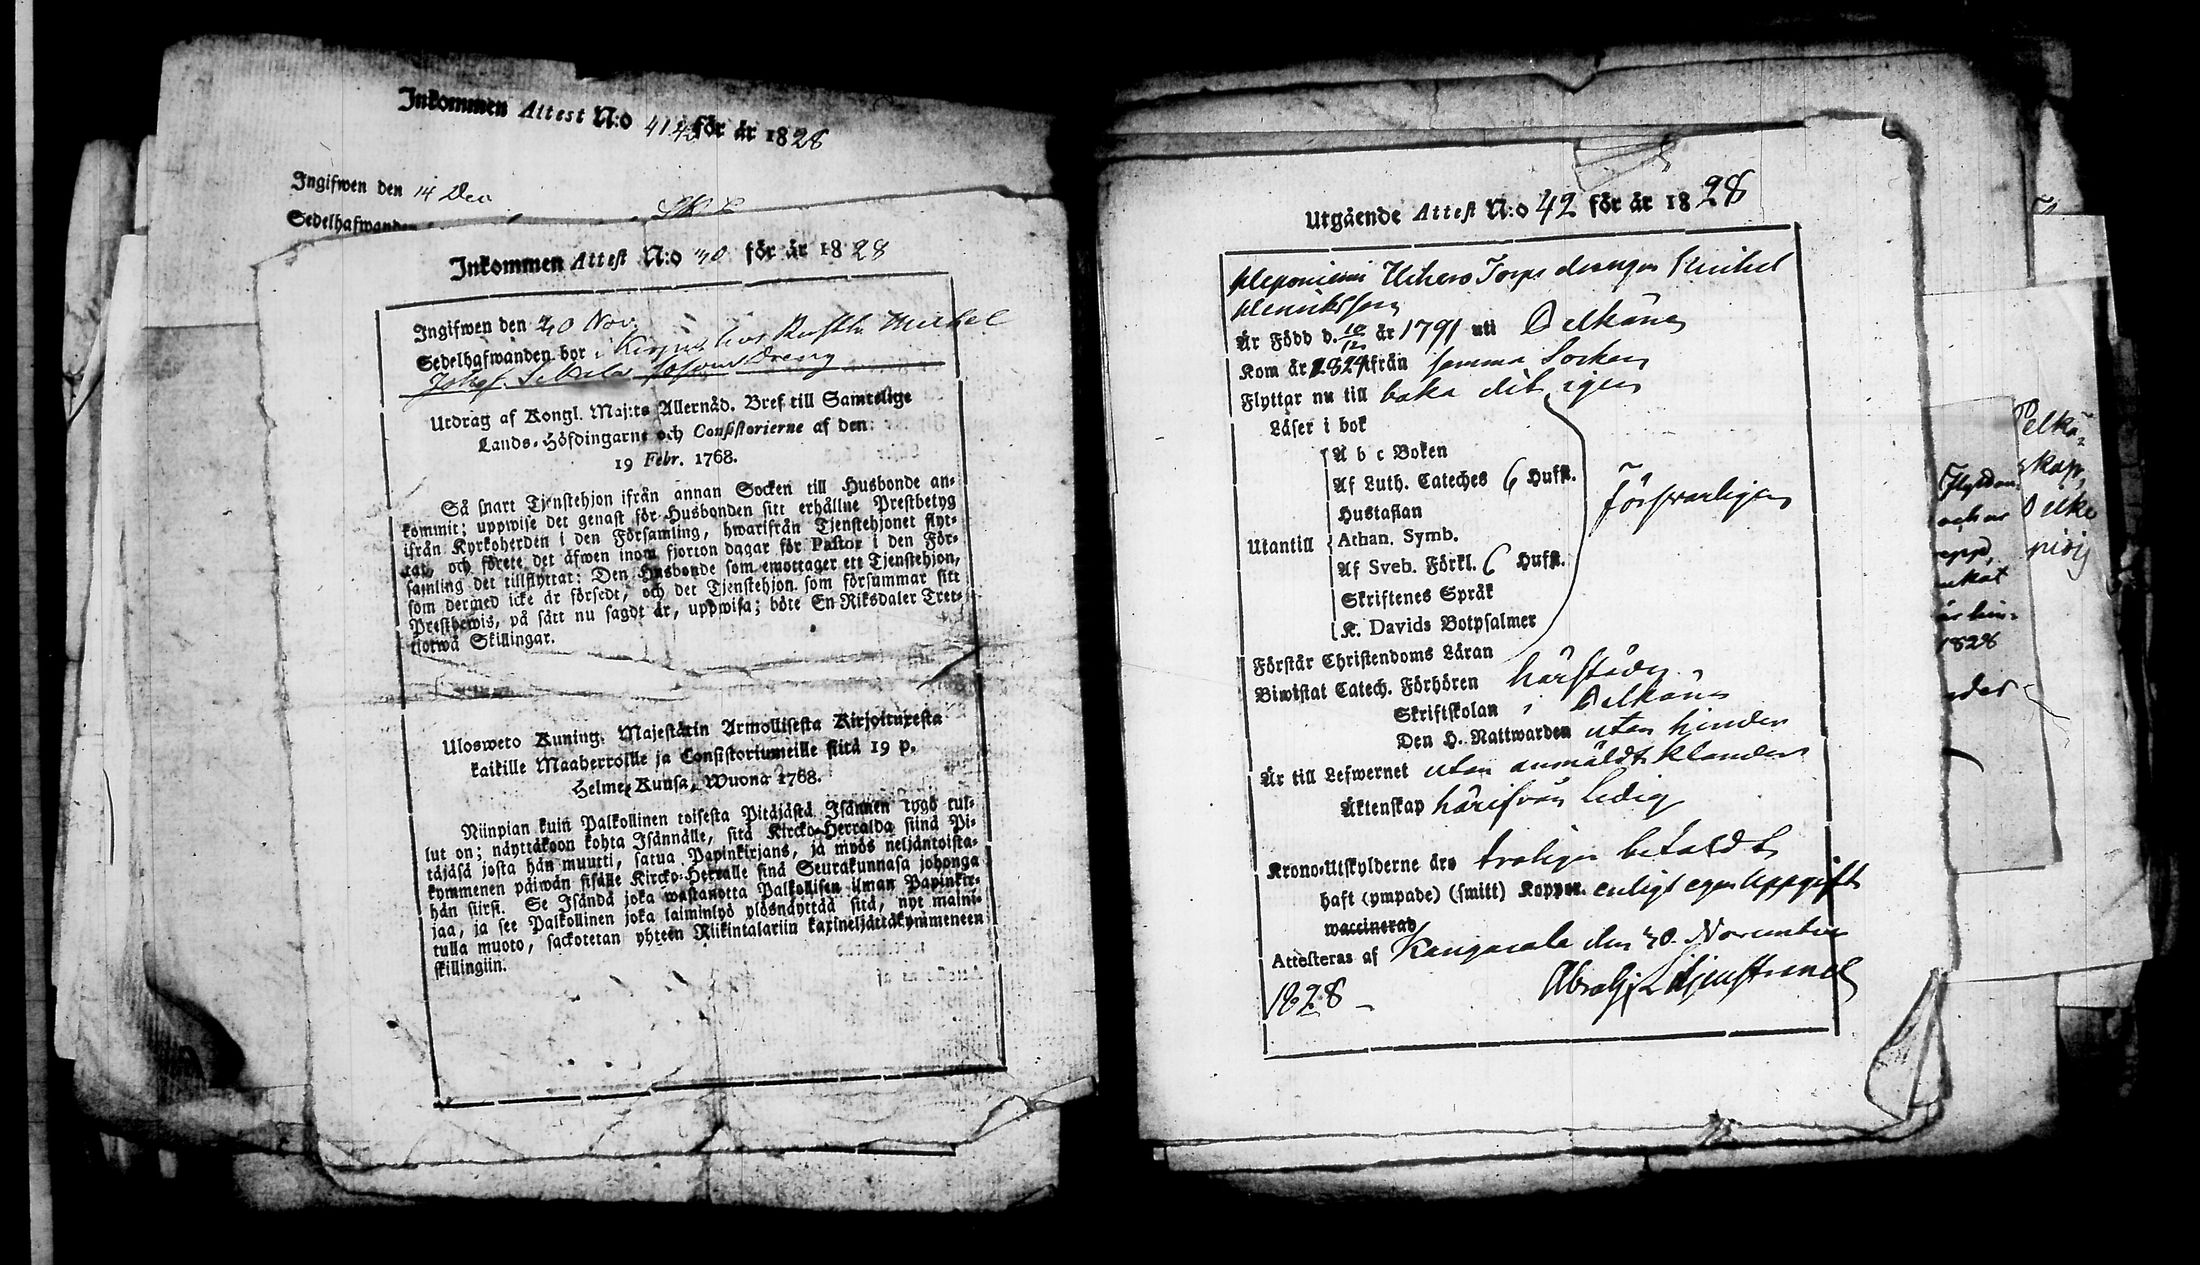 Inkommen Attest N:o 41 42 för år 1828
Ingifwen den 14 Dec
Sedelhafwanden
Inkommen Attest N:o 40 för år 1828
Ingifwen den 30 Nov.
Sedelhafwanden bor i hos Rusth. Michel
Johans Dreng
Utdrag af Kongl. Maj:ts Allernåd. Bref till Samtelige
Lands-Höfdingarne och Consistorierne af den
19 Febr. 1768.
Så snart Tjenstehjon ifrån annan Socken till Husbonde an-
kommit; uppwise det genast för Husbonden sitt erhållne Prestbetyg
ifrån Kyrkoherden i den Församling, hwarifrån Tjenstehjonet flyt-
tat, och förete det äfwen inom fjorton dagar för Pastor i den För-
samling det tillflyttat: Den Husbonde som emottager ett Tjenstehjon,
som dermed icke är försedt, och det Tjenstehjon som försummar sitt
Prestbewis, på sätt nu sagdt är, uppwisa; böte En Riksdaler Tret-
tiotwå Skillingar.
Ulosweto Kuning. Majestätin Armollisesta Kirjoituxesta
kaikille Maaherroille ja Consistoriumeille siitä 19 p.
Helme-Kuusa, Wuona 1768.
Niinpian kuin Palkollinen toisesta Pitäjästä Isännen tygö tul-
lut on; näyttäköön kohta Isännälle, sitä Kircko-Herralda siinä Pi-
täjäsä josta hän muutti, saatua Papinkirjans, ja myös neljäntoista-
kymmenen päiwän sisälle Kircko-Herralle sinä Seurakunnasa johonga
hän siirsi. Se Isändä joka wastanotta Palkollisen ilman Papinkir-
jaa, ja see Palkollinen joka laiminlyö ylösnäyttää sitä, nyt maini-
tulla muoto, sackotetan yhteen Riikintalariin kaxineljättäkymmeneen
skillingiin.
Utgående Attest N:o 42 för år 1828
Heponiemi Uchero Torps drengen Michel
Henriksson
Är Född d. 10/12 år 1791 uti Pelkäne
Kom år 1824 ifrån samma Socken
Flyttar nu till baka dit igen
Läser i bok
A b c Boken
Af Luth. Cateches 6 Hufst.
Hustaflan
Utantill Athan. Symb.
Af Sveb. Förkl. 6 Hufst.
Skriftenes Språk
K. Davids Botpsalmer
Försvarligen
Förstår Christendoms Läran
Biwistat Catech. Förhören härstädes
Skriftskolan i Pelkäne
Den H. Nattwarden utan hinder
Är till Lefwernet utan anmäldt klander
Äktenskap härifrån ledig
Krono-Utskylderne äro troligen betaldt
haft (ympade) (smitt) Koppor. enligt egen Uppgift
waccinerad
Attesteras af Kangasala den 30. November
1828
Pelkä-
skap,
Flyttar
och ar
Pelke
1828